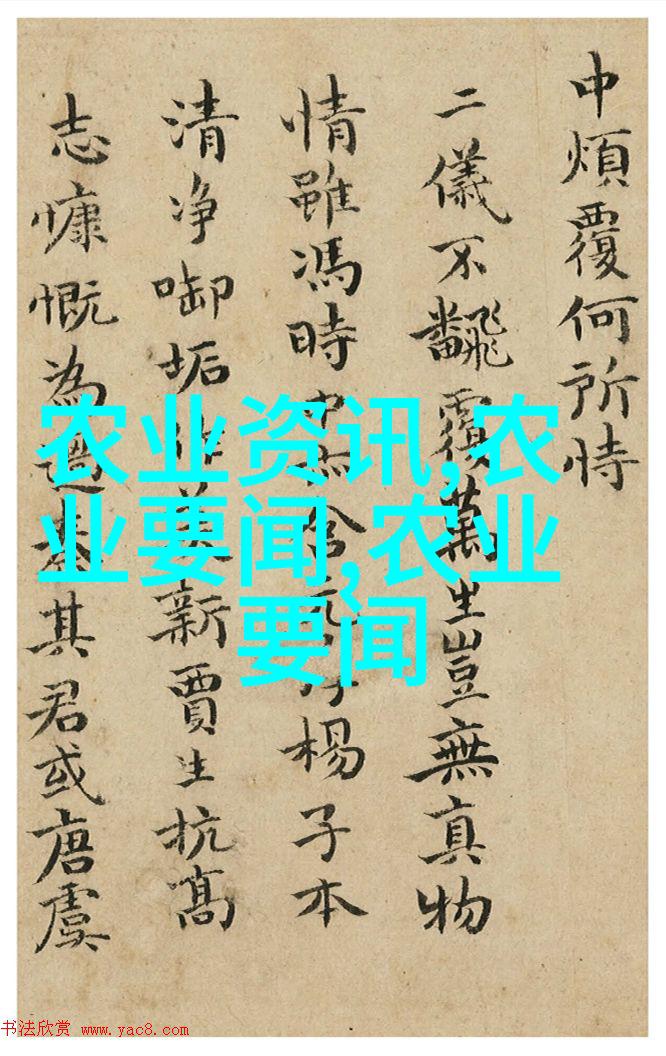 中煩覆何所恃
二儀不飜覆萬生豈無真物
情雖馮時中含楊子本
清净啣垢作美新賈生抗高
志慷慨為過秦其君或唐虞
农业资讯,农
业要闻,农业
要闻
书法欣赏 www.yac8.com